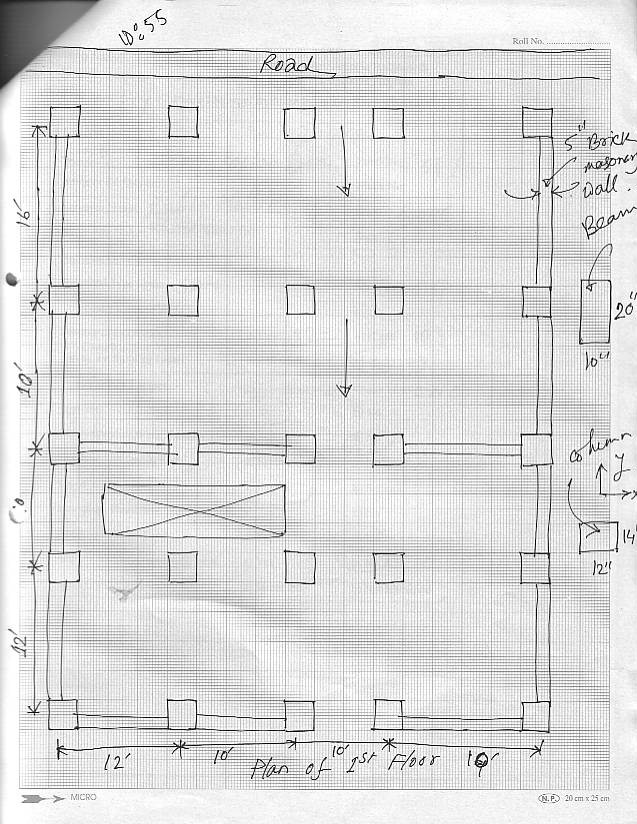 10:55
Roll No.
Road
5" Brick
masonry
wall.
Beam
20"
10"
16'
10'
Column
y
x
14"
12"
12'
12'
10'
10'
Plan of 1st Floor
MICRO
N.P. 20 cm x 25 cm